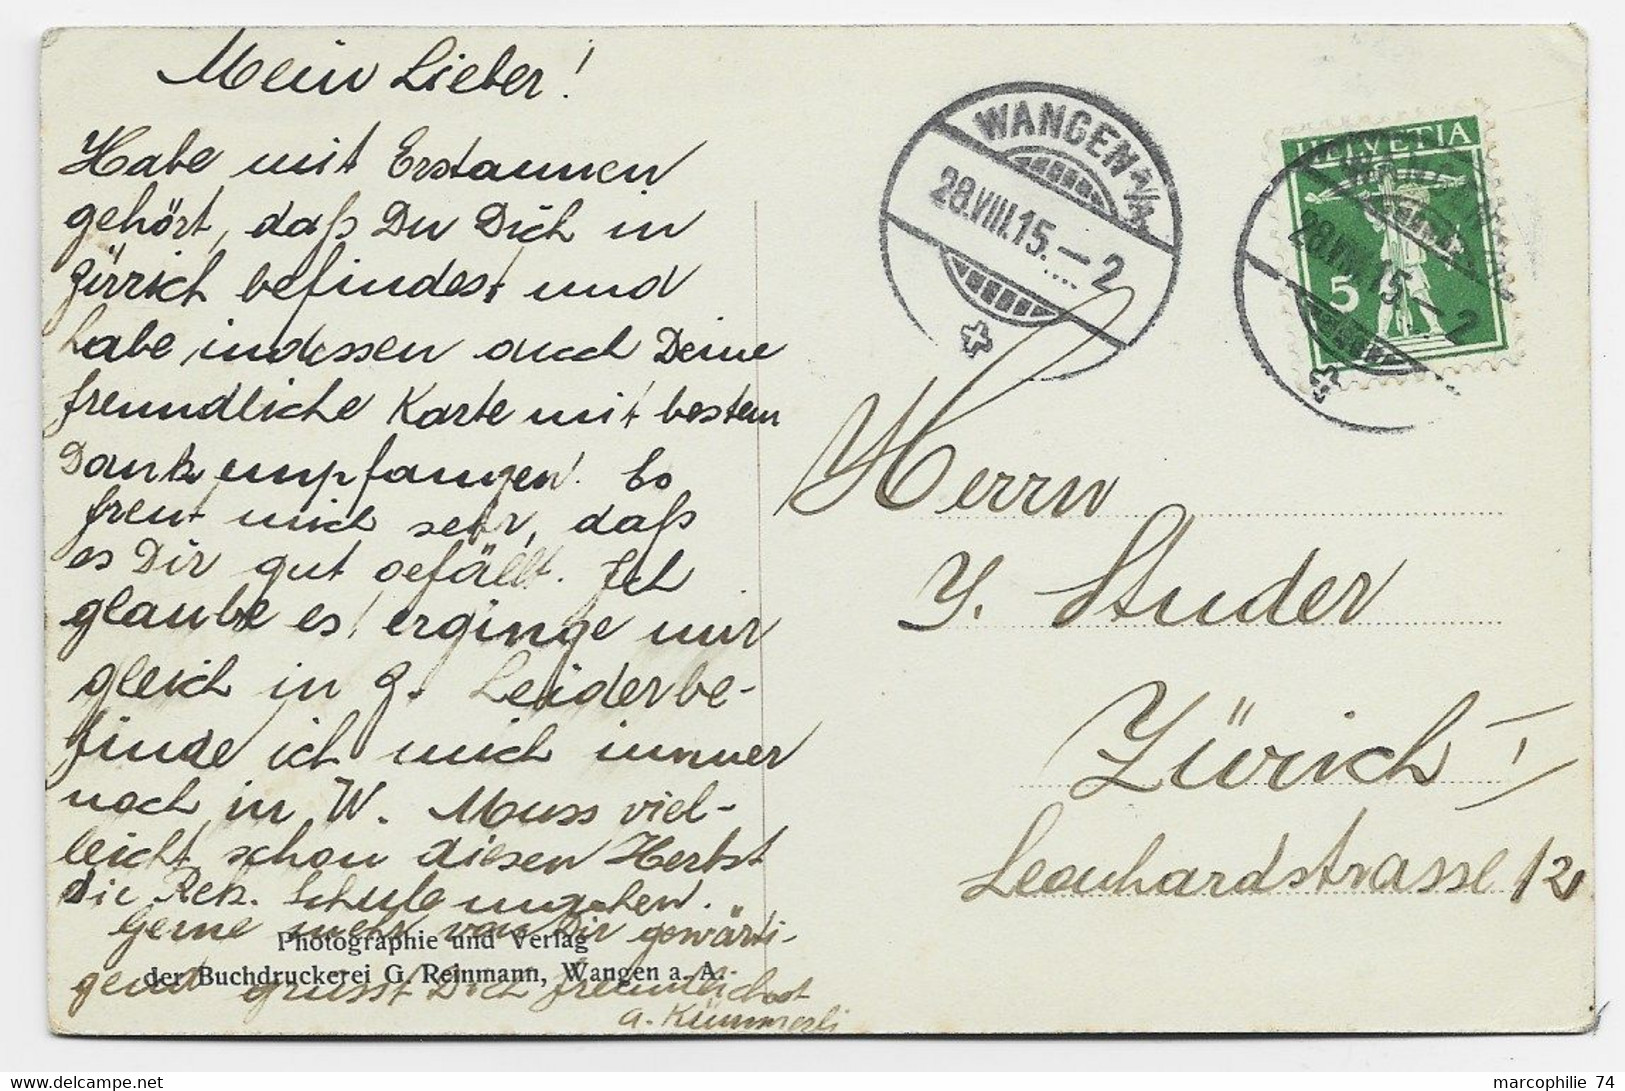 Mein Lieber!
Habe mit Erstaunen
gehört, daß Du Dich in
Zürich befindest und
habe indessen auch Deine
freundliche Karte mit bestem
Dank empfangen. Es
freut mich sehr, daß
es Dir gut gefällt. Ich
glaube es erginge mir
gleich in Z. Leider be-
finde ich mich immer
noch in W. Muss viel-
leicht schon diesen Herbst
die Rek. Schule machen.
Gerne mehr von Dir gewärti-
gend grüsst Dich freundlichst
A. Kümmerli
Photographie und Verlag
der Buchdruckerei G. Reinmann, Wangen a. A.
WANGEN a/A.
28.VIII.15.–2
HELVETIA
5
28.VIII.15.–2
Herrn
J. Studer
Zürich I
Leonhardstrasse 12
marcophilie 74
www.delcampe.net